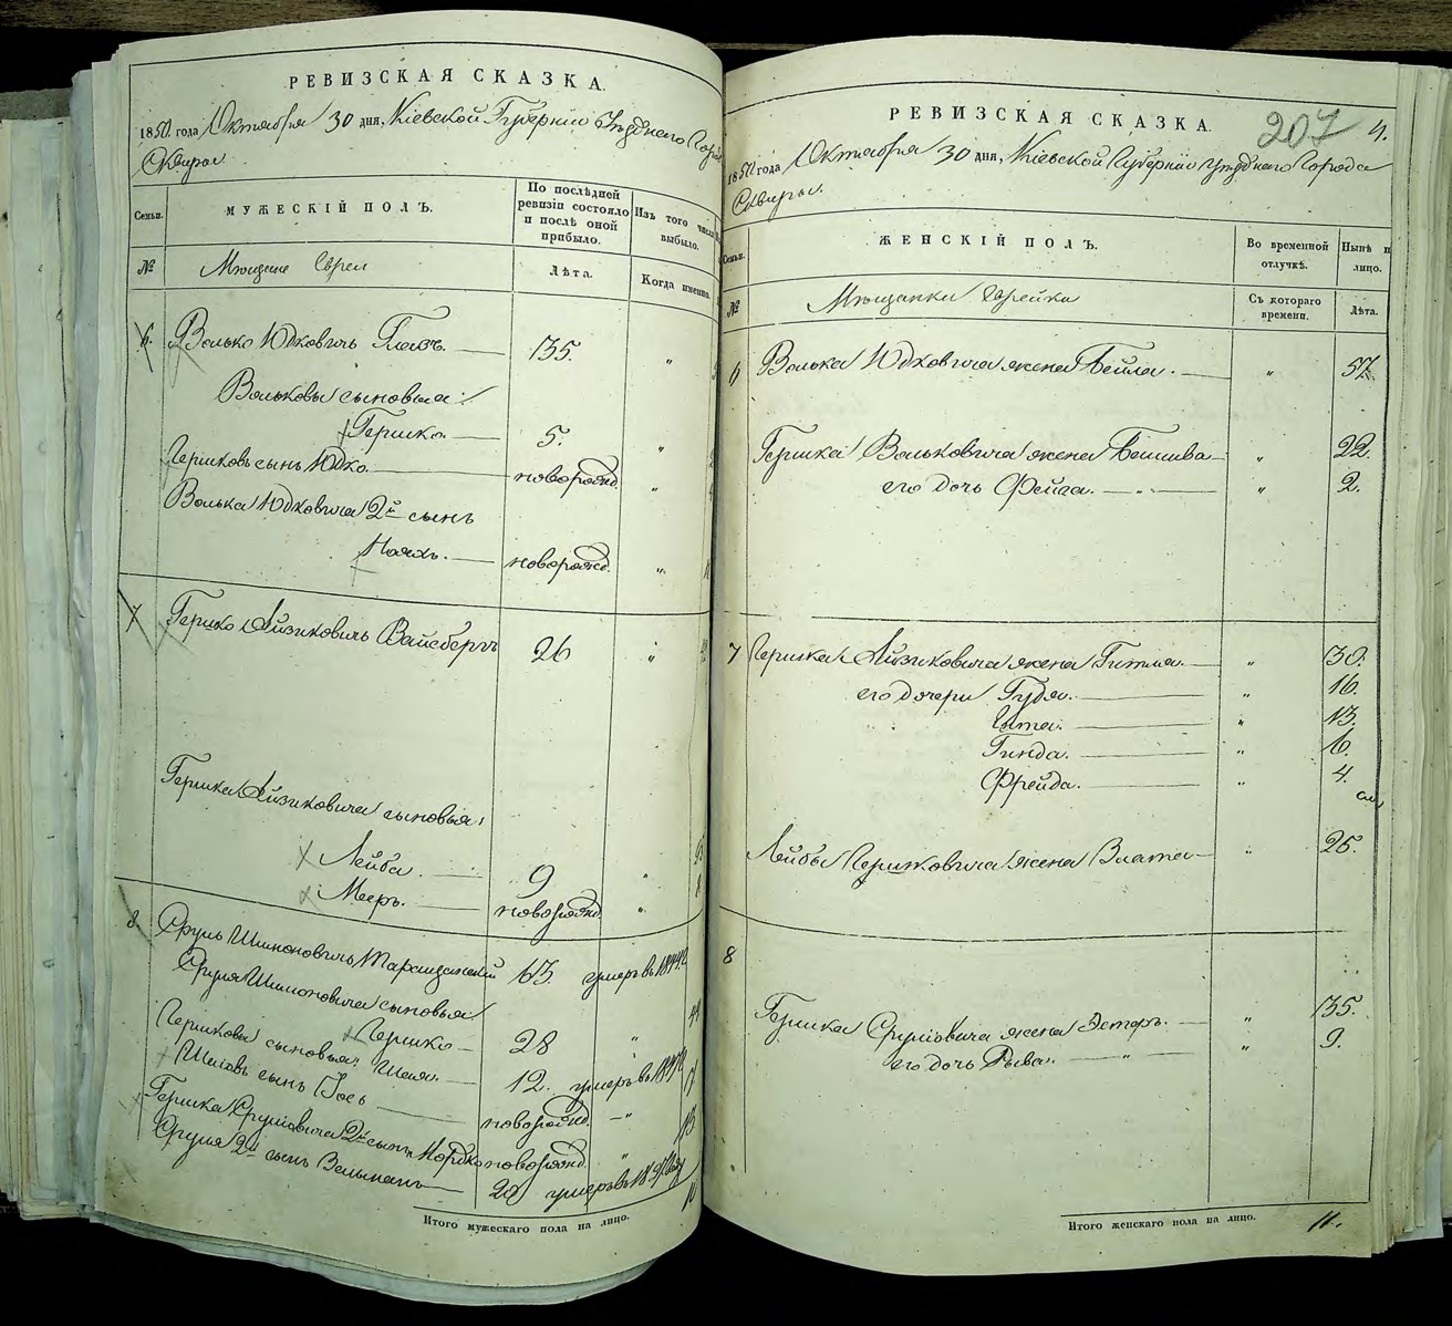 РЕВИЗСКАЯ СКАЗКА.
1850 года Октября 30 дня, Кіевской Губерніи Уѣзднаго Города
Сквиры
Семьи.
МУЖЕСКІЙ ПОЛЪ.
По послѣдней ревизіи состояло и послѣ оной прибыло.
Изъ того числа выбыло.
№
Мѣщане Евреи
Лѣта.
Когда именно.
6. Волько Юдковичь 35. "
Вольковы сыновья:
Гершко. 5. "
Гершковъ сынъ Юдко. новорожд. "
Волька Юдковича 2й сынъ
Ноахъ. новорожд. "
7 Гершко Айзиковичь Вайсбергъ 26 "
Гершка Айзиковича сыновья:
Лейба. 9 "
Мееръ. новорожд. "
8. Сруль Шимоновичь Таращанскій 63. умеръ въ 1844
Сруля Шимоновича сыновья
Гершко 28 "
Гершковы сыновья: Шая. 12. умеръ въ
Шаіовъ сынъ Іось новорожд. "
Гершка Сруліовича 2й сынъ Мордко новорожд. "
Сруля 2й сынъ Вельманъ 20 умеръ въ
Итого мужескаго пола на лицо.
РЕВИЗСКАЯ СКАЗКА.
207 4.
1850 года Октября 30 дня, Кіевской Губерніи Уѣзднаго Города
Сквиры.
Семьи.
ЖЕНСКІЙ ПОЛЪ.
Во временной отлучкѣ.
Нынѣ н лицо.
№
Мѣщанки Еврейки
Съ котораго времени.
Лѣта.
6 Волька Юдковича жена Бейла. " 57.
Гершка Вольковича жена " 22.
его дочь Фейга. " 2.
7 Гершка Айзиковича жена Гитля. " 30.
его дочери Гудя. " 16.
Ента. " 13.
Гинда. " 6.
Фрейда. " 4.
Лейбы Гершковича жена Злата " 25.
8
Гершка Сруліовича жена Эстеръ. " 35.
его дочь Рыва. " 9.
Итого женскаго пола на лицо. 11.